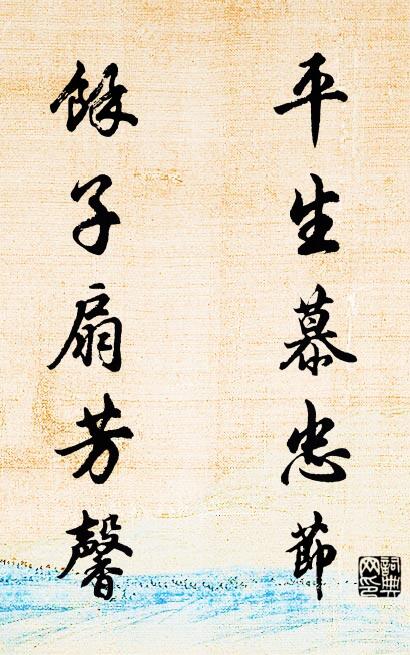 平生慕忠節
餘子扇芳馨
詞典
网印